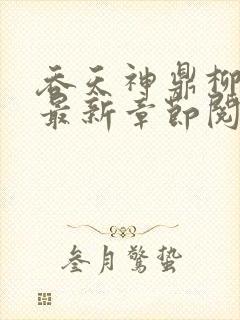 吞天神鼎柳
最新章節閱
叁月驚蟄